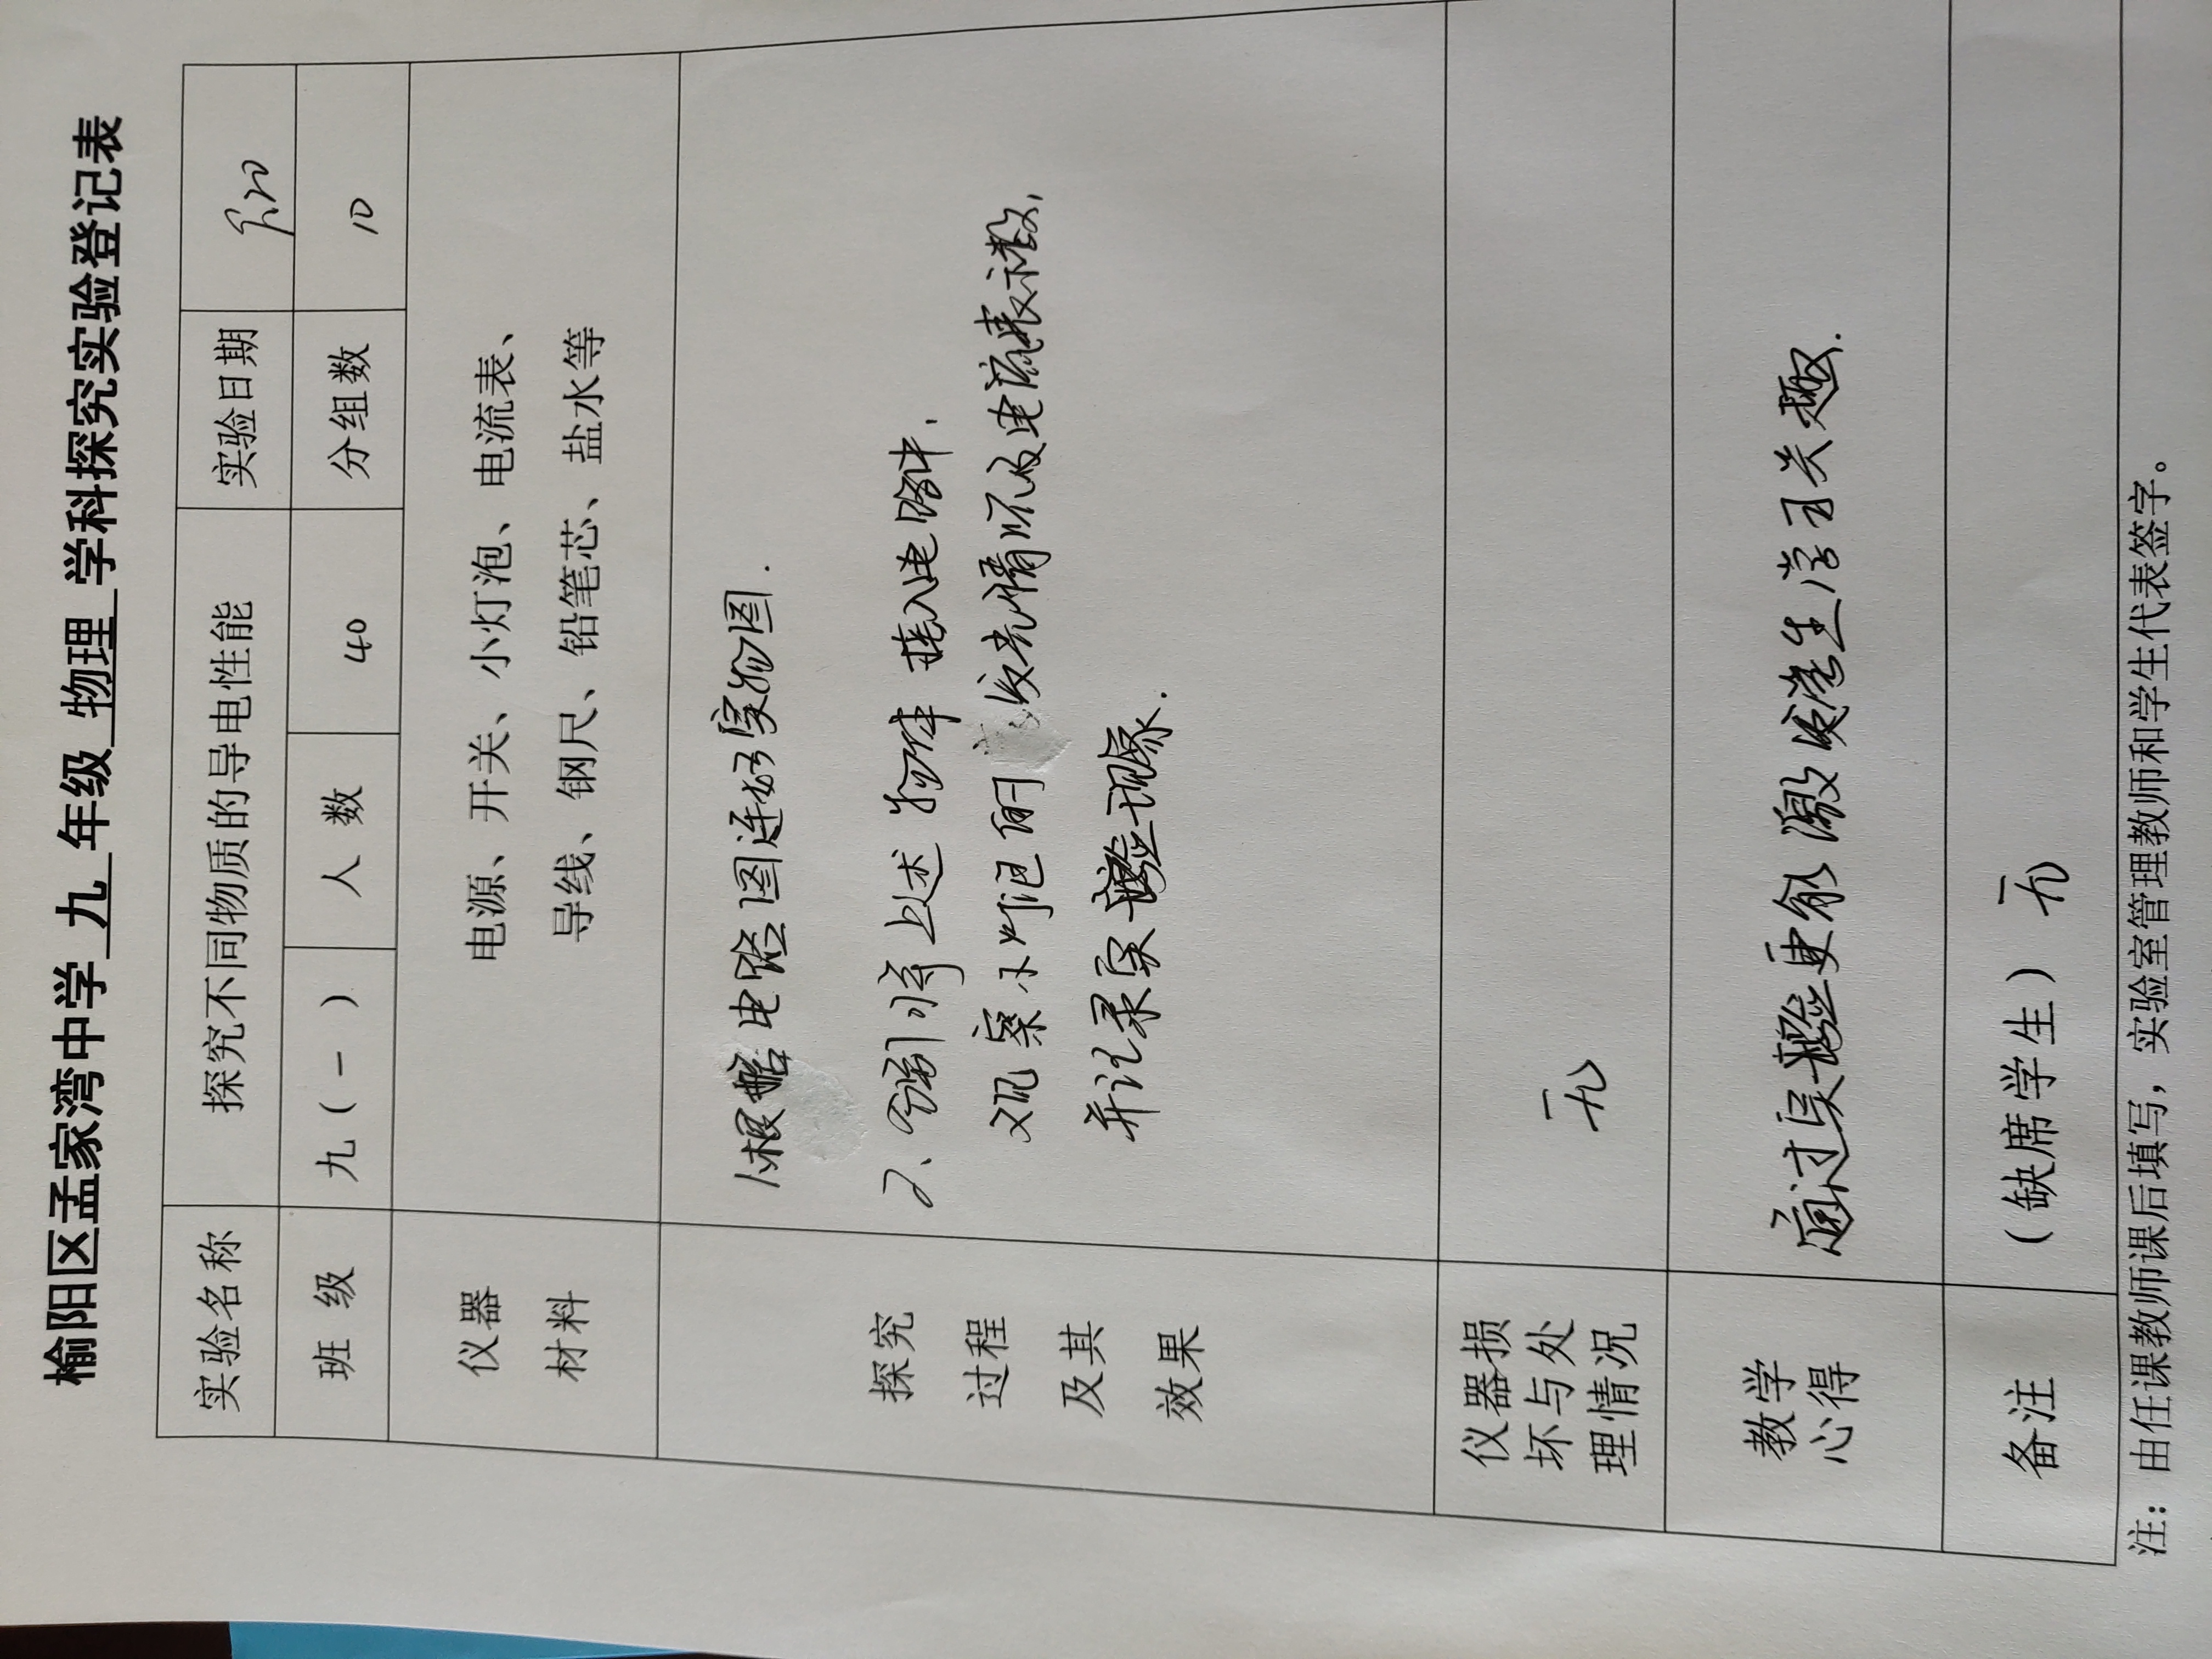 榆阳区孟家湾中学 九 年级 物理 学科探究实验登记表
实验名称 探究不同物质的导电性能 实验日期
班 级 九（一） 人 数 40 分组数 10
仪器
材料
电源、开关、小灯泡、电流表、
导线、钢尺、铅笔芯、盐水等
探究
过程
及其
效果
1.根据电路图连好实物图.
2、分别将上述物体接入电路中.
观察小灯泡的发光情况及电流表示数,
并记录实验现象.
仪器损
坏与处
理情况
无
教学
心得
通过实验更能激发学生学习兴趣.
备注 （缺席学生）无
注：由任课教师课后填写，实验室管理教师和学生代表签字。